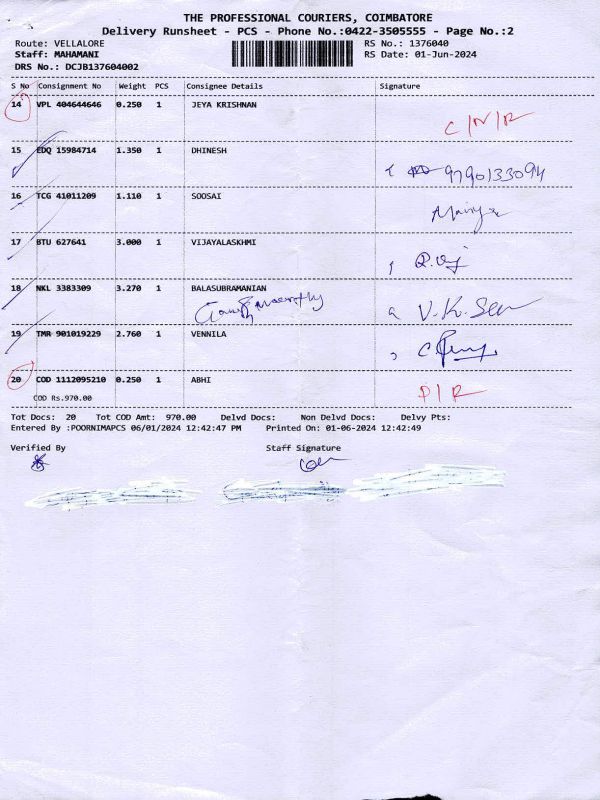 THE PROFESSIONAL COURIERS, COIMBATORE
Delivery Runsheet - PCS - Phone No.:0422-3505555 - Page No.:2
Route: VELLALORE RS No.: 1376040
Staff: MAHAMANI RS Date: 01-Jun-2024
DRS No.: DCJB137604002
S No Consignment No Weight PCS Consignee Details Signature
14 VPL 404644646 0.250 1 JEYA KRISHNAN
C/N/R
15 EDQ 15984714 1.350 1 DHINESH
9790133094
16 TCG 41011209 1.110 1 SOOSAI
17 BTU 627641 3.000 1 VIJAYALASKHMI
18 NKL 3383309 3.270 1 BALASUBRAMANIAN
V.K.Sen
19 TMR 901019229 2.760 1 VENNILA
20 COD 1112095210 0.250 1 ABHI
D/R
COD Rs.970.00
Tot Docs: 20 Tot COD Amt: 970.00 Delvd Docs: Non Delvd Docs: Delvy Pts:
Entered By :POORNIMAPCS 06/01/2024 12:42:47 PM Printed On: 01-06-2024 12:42:49
Verified By Staff Signature